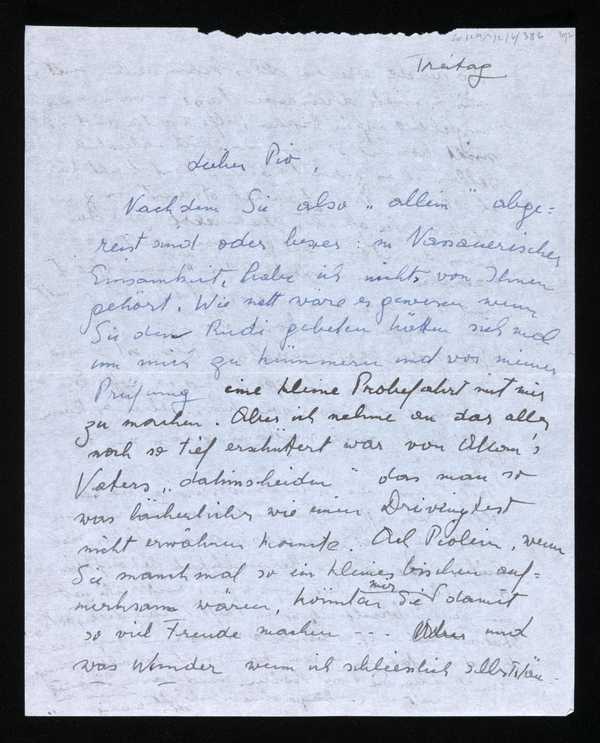 Freitag
Lieber Pio,
Nachdem Sie also „allein" abge-
reist sind oder besser: in Nassauerischer
Einsamkeit, habe ich nichts von Ihnen
gehört. Wie nett wäre es gewesen wenn
Sie den Rudi gebeten hätten sich mal
um mich zu kümmern und vor meiner
Prüfung eine kleine Probefahrt mit mir
zu machen. Aber ich nehme an das alles
noch so tief erschüttert war von
Vaters „dahinscheiden" das man so
was lächerliches wie einen Drivingtest
nicht erwähnen konnte. Ach Piolein, wenn
Sie manchmal so ein kleines bischen auf-
merksam wären, könnten Sie mir damit
so viel Freude machen --- und
was Wunder wenn ich schliesslich selbststän-